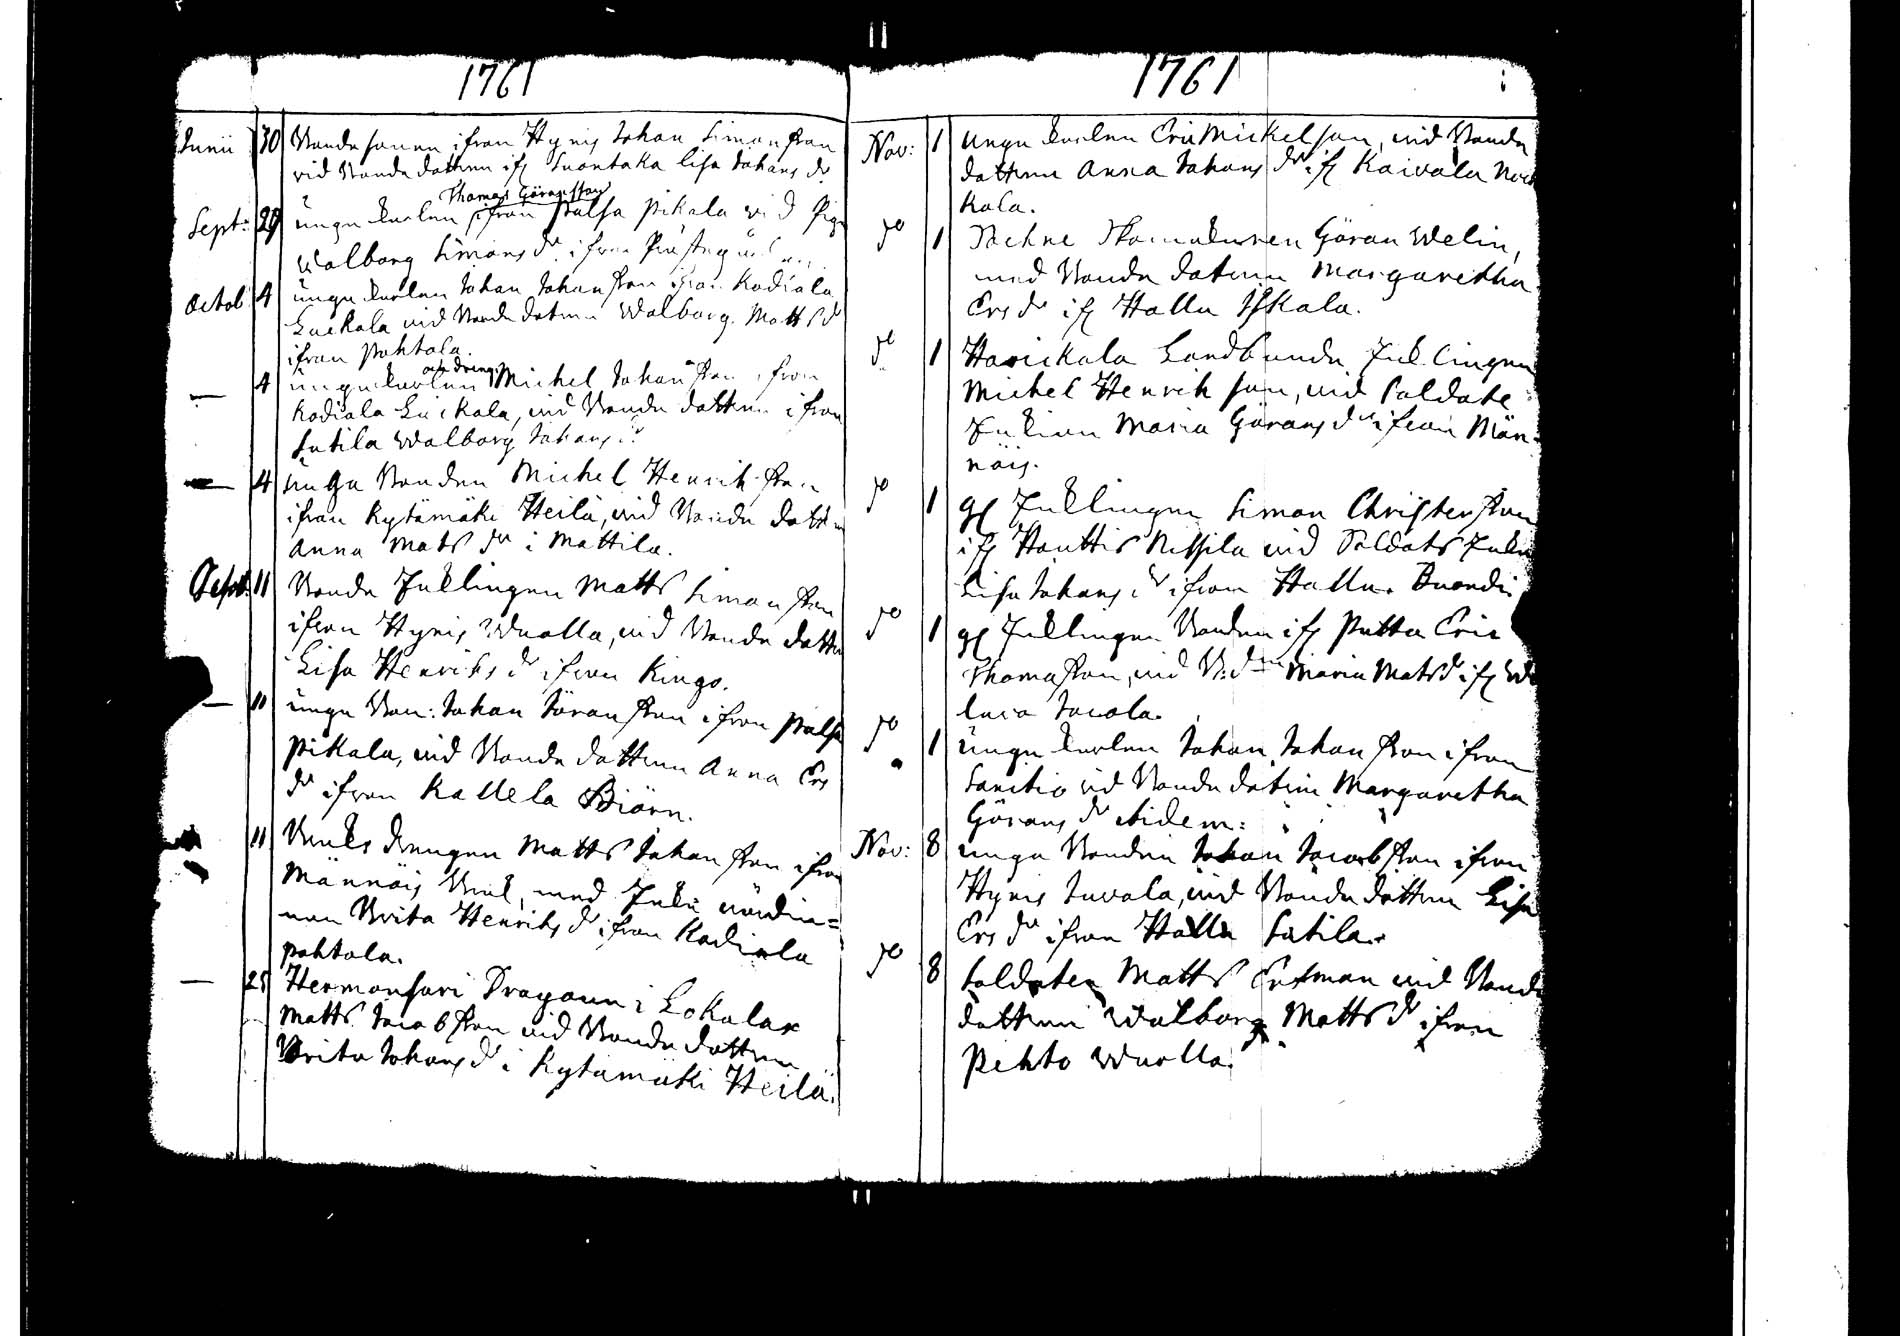 1761
Junii 30 Bonde sonen ifrån Hynis Johan Simonsson
vid Bonde dottren if Suontaka Lisa Johans dr
Thomas Göransson
Sept: 29 unge karlen ifrån palsa pikala vid Pig
Walborg Simons dr ifrån
Octob 4 unge karlen Johan Johansson ifrån Kodiala
Luckala vid Bonde dotren Walborg Matts dr
ifrån pahtala.
och dreng
— 4 unge karlen Michel Johansson ifrån
Kodiala Luckala, vid Bonde dottren ifrån
Sutila Walborg Johans dr
— 4 unga Bonden Michel Henrichsson
ifrån Kytämäki Heilä, vid Bonde dottren
Anna Mats dr i Mattila.
Sept. 11 Bonde Enklingen Matts Simonsson
ifrån Hynis Wualla, vid Bonde dottre
Lisa Henrichs dr ifrån Kingo.
— 11 unge Bon: Johan Jöransson ifrån palsa
pikala, vid Bonde dottren Anna Ers
dr ifrån Kallela Biörn.
11 Bruks drengen Matts Johansson ifrån
Männäis Bruk, med Enke
nan Brita Henrichs dr ifrån Kodiala
pahtala.
— 25 Hermansari Dragoun i Lokalax
Matts Jacobsson vid Bonde dottren
Brita Johans dr i Kytämäki Heilä.
1761
Nov: 1 unge karlen Eric Mickelson, vid Bonde
dottren Anna Johans dr if Kaivola
kala.
do 1 Göran Welin,
med Bonde dotren Margaretha
Ers dr if Hallu Ylikala.
do 1 Havickala Landbonde Enklingen
Michel Henrich son, vid Soldate
Enkian Maria Görans dr ifrån Män-
näis.
do 1 gl Enklingen Simon Christersson
if Hauttis Nissila vid Soldats Enkn
Lisa Johans dr ifrån Hallu.
do 1 gl Enklingen Bonden if Putta Eric
Thomasson, vid B:d Maria Mats dr if
Jacola.
do 1 unge karlen Johan Johansson ifrån
Santio vid Bonde dotren Margaretha
Görans dr ibidem:
Nov: 8 unga Bonden Johan Jacobsson ifrån
Hynis Juvala, vid Bonde dottren Lisa
Ers dr ifrån Hallu Sutila.
do 8 Soldaten Matts Ertman vid Bonde
dottren Walborg Matts dr ifrån
Pehto Wualla.